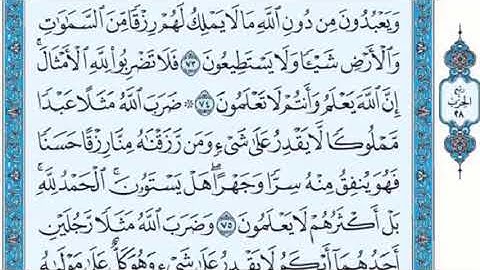 وَيَعْبُدُونَ مِن دُونِ ٱللَّهِ مَا لَا يَمْلِكُ لَهُمْ رِزْقًا مِّنَ ٱلسَّمَٰوَٰتِ
وَٱلْأَرْضِ شَيْـًٔا وَلَا يَسْتَطِيعُونَ ٧٣ فَلَا تَضْرِبُوا۟ لِلَّهِ ٱلْأَمْثَالَ ۚ
إِنَّ ٱللَّهَ يَعْلَمُ وَأَنتُمْ لَا تَعْلَمُونَ ٧٤ ۞ ضَرَبَ ٱللَّهُ مَثَلًا عَبْدًا
مَّمْلُوكًا لَّا يَقْدِرُ عَلَىٰ شَىْءٍ وَمَن رَّزَقْنَٰهُ مِنَّا رِزْقًا حَسَنًا
فَهُوَ يُنفِقُ مِنْهُ سِرًّا وَجَهْرًا ۖ هَلْ يَسْتَوُۥنَ ۚ ٱلْحَمْدُ لِلَّهِ ۚ
بَلْ أَكْثَرُهُمْ لَا يَعْلَمُونَ ٧٥ وَضَرَبَ ٱللَّهُ مَثَلًا رَّجُلَيْنِ
أَحَدُهُمَآ أَبْكَمُ لَا يَقْدِرُ عَلَىٰ شَىْءٍ وَهُوَ كَلٌّ عَلَىٰ مَوْلَىٰهُ
ربع
الحزب
٢٨